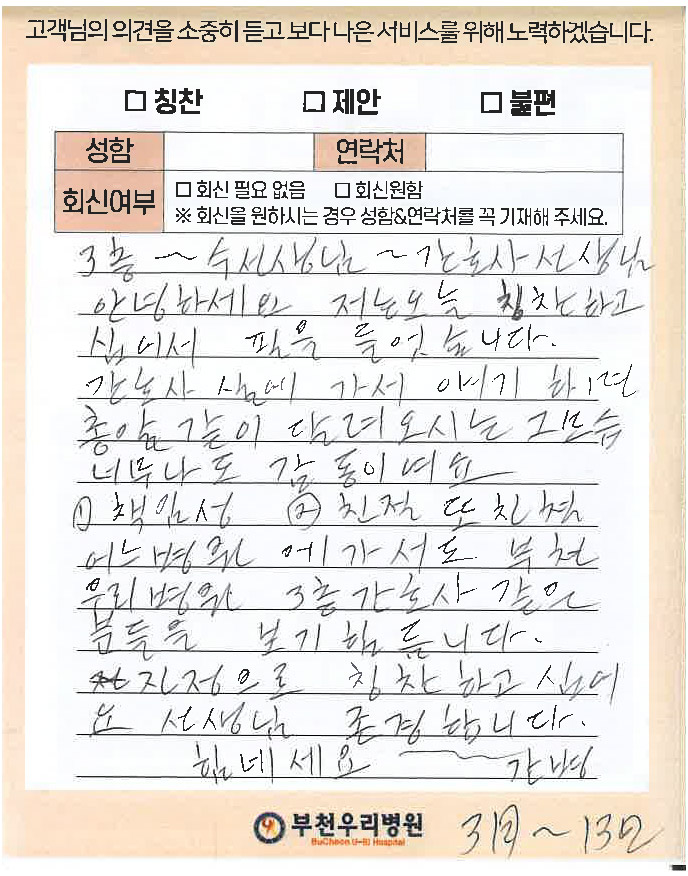 고객님의 의견을 소중히 듣고 보다 나은 서비스를 위해 노력하겠습니다.
□ 칭찬 □ 제안 □ 불편
성함 연락처
회신여부 □ 회신 필요 없음 □ 회신원함
※ 회신을 원하시는 경우 성함&연락처를 꼭 기재해 주세요.
3층 ~ 수선생님 ~ 간호사선생님
안녕하세요 저는오늘 칭찬하고
십어서 펜을 들엇습니다.
간호사 실에 가서 애기 하면
총알 같이 달려오시는 그모습
너무나도 감동이여요
① 책임성 ② 친절 또 친절
어느병원에가서도 부천
우리병원 3층간호사 같은
분들을 보기힘듭니다.
진정으로 칭찬하고 십어
요 선생님 존경합니다.
힘네세요 ~ 간병
부천우리병원
BuCheon U-Ri Hospital
3月~13日